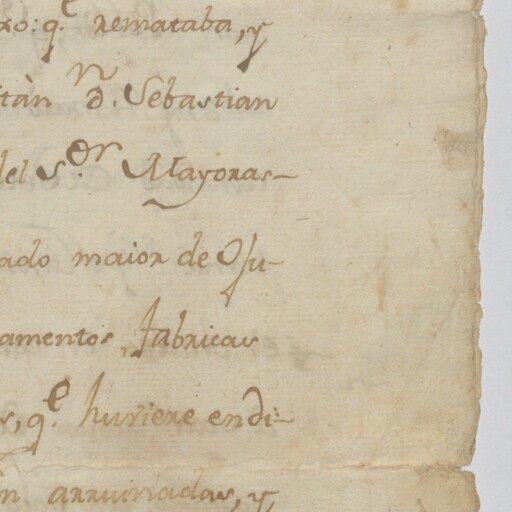 xo: q.e remataba, y
tàn Dn. Sebastian
del Sor. Mayoras-
ado maior de Osu-
amentos, fabricas
s, q.e huviere endi-
n arruinadas, y,